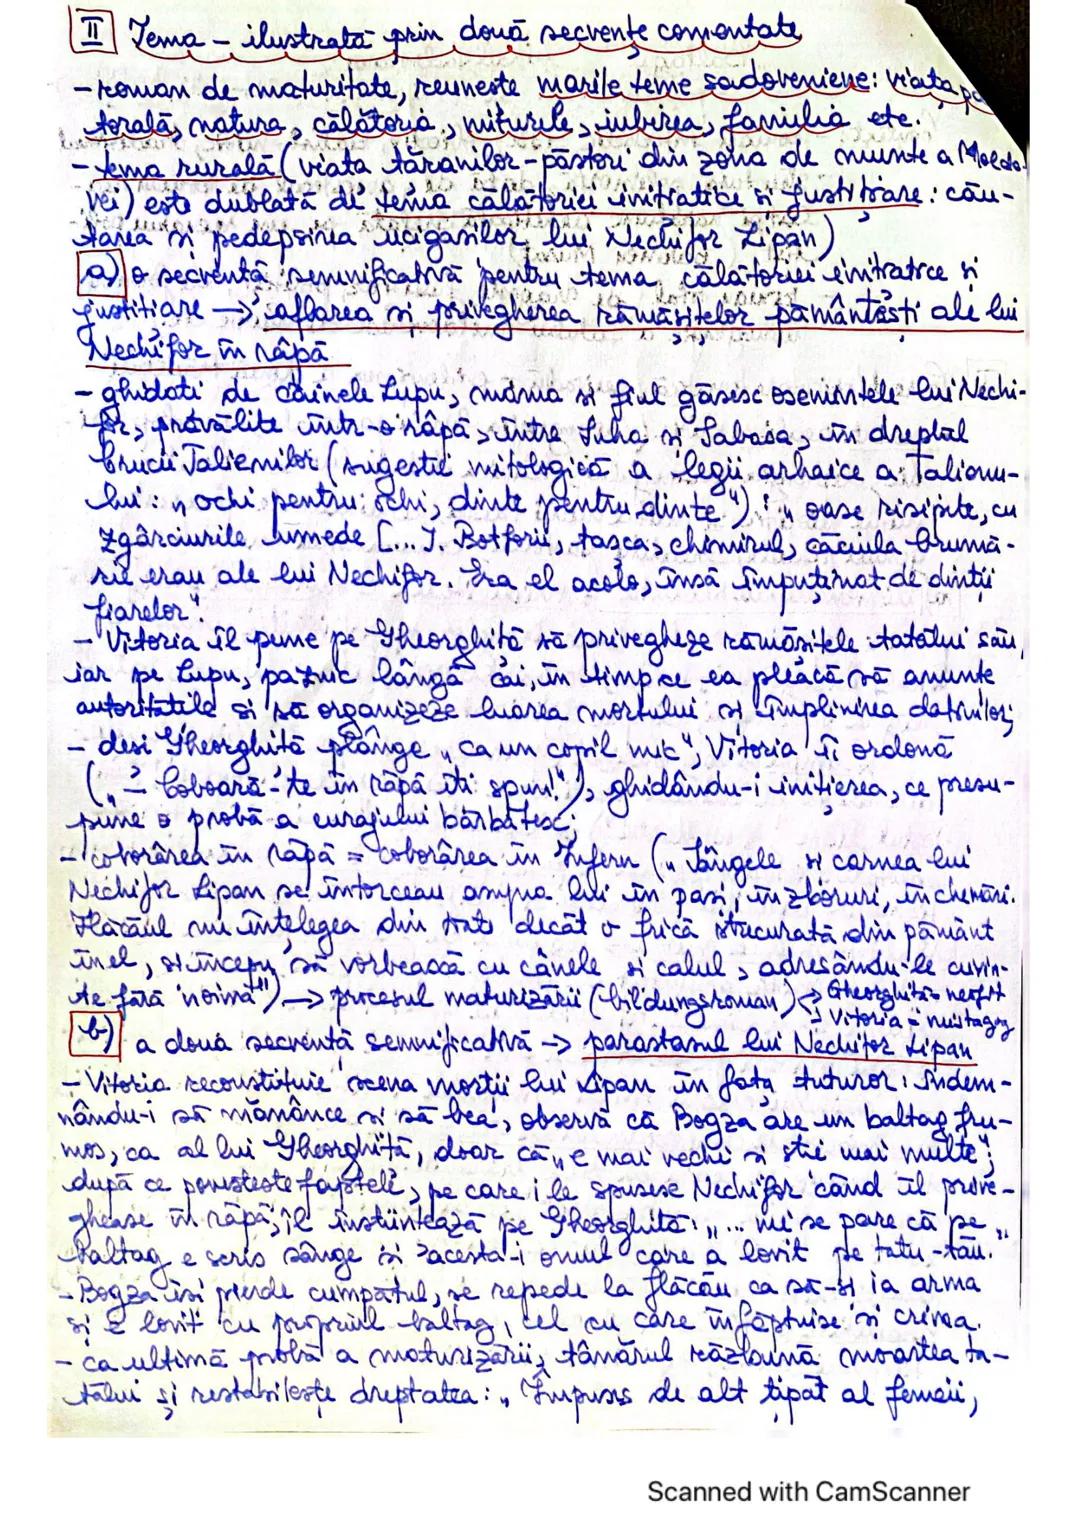 II Tema – ilustrată prin două secvențe comentate
- roman de maturitate, reunește marile teme sadoveniene: viața pas-
torală, natura, călătoria, miturile, iubirea, familia etc.
- tema rurală (viața țăranilor-păstori din zona de munte a Moldo-
vei) este dublată de tema călătoriei inițiatice și justițiare: cău-
tarea și pedepsirea ucigașilor lui Nechifor Lipan)
a) o secvență semnificativă pentru tema călătoriei inițiatice și
justițiare → aflarea și privegherea rămășițelor pământești ale lui
Nechifor în râpă
- ghidați de câinele Lupu, mama și fiul găsesc osemintele lui Nechi-
for, prăvălite într-o râpă, între Suha și Sabasa, în dreptul
Crucii Talienilor (sugestie mitologică a legii arhaice a Talionu-
lui: „ochi pentru ochi, dinte pentru dinte"): „oase risipite, cu
zgârciurile umede [...]. Botforii, tașca, chimirul, căciula brumă-
rie erau ale lui Nechifor. Era el acolo, însă împuținat de dinții
fiarelor".
- Vitoria îl pune pe Gheorghiță să privegheze rămășițele tatălui său,
iar pe Lupu, paznic lângă cai, în timp ce ea pleacă să anunțe
autoritățile și să organizeze luarea mortului și împlinirea datinilor;
- deși Gheorghiță plânge „ca un copil mic", Vitoria îi ordonă
(„– Coboară-te în râpă îți spun!"), ghidându-i inițierea, ce presu-
pune o probă a curajului bărbătesc;
- coborârea în râpă = coborârea în Infern („Sângele și carnea lui
Nechifor Lipan se întorceau asupra lui în pași, în zboruri, în chemări.
Flăcăul nu înțelegea din toate decât o frică strecurată din pământ
în el, și începu să vorbească cu cânele și calul, adresându-le cuvin-
te fără noimă") → procesul maturizării (bildungsroman) → Gheorghiță = neofit
→ Vitoria = mistagog
b) a doua secvență semnificativă → parastasul lui Nechifor Lipan
- Vitoria reconstituie scena morții lui Lipan în fața tuturor: îndem-
nându-i să mănânce și să bea, observă că Bogza are un baltag fru-
mos, ca al lui Gheorghiță, doar că „e mai vechi și știe mai multe";
după ce povestește faptele, pe care i le spusese Nechifor când îl prive-
ghease în râpă, îl înștiințează pe Gheorghiță: „... mi se pare că pe
baltag e scris sânge și acesta-i omul care a lovit pe tatu-tău."
- Bogza își pierde cumpătul, se repede la flăcău ca să-și ia arma
și e lovit cu propriul baltag, cel cu care înfăptuise și crima.
- ca ultimă probă a maturizării, tânărul răzbună moartea ta-
tălui și restabilește dreptatea: „Împuns de alt țipăt al femeii,
Scanned with CamScanner